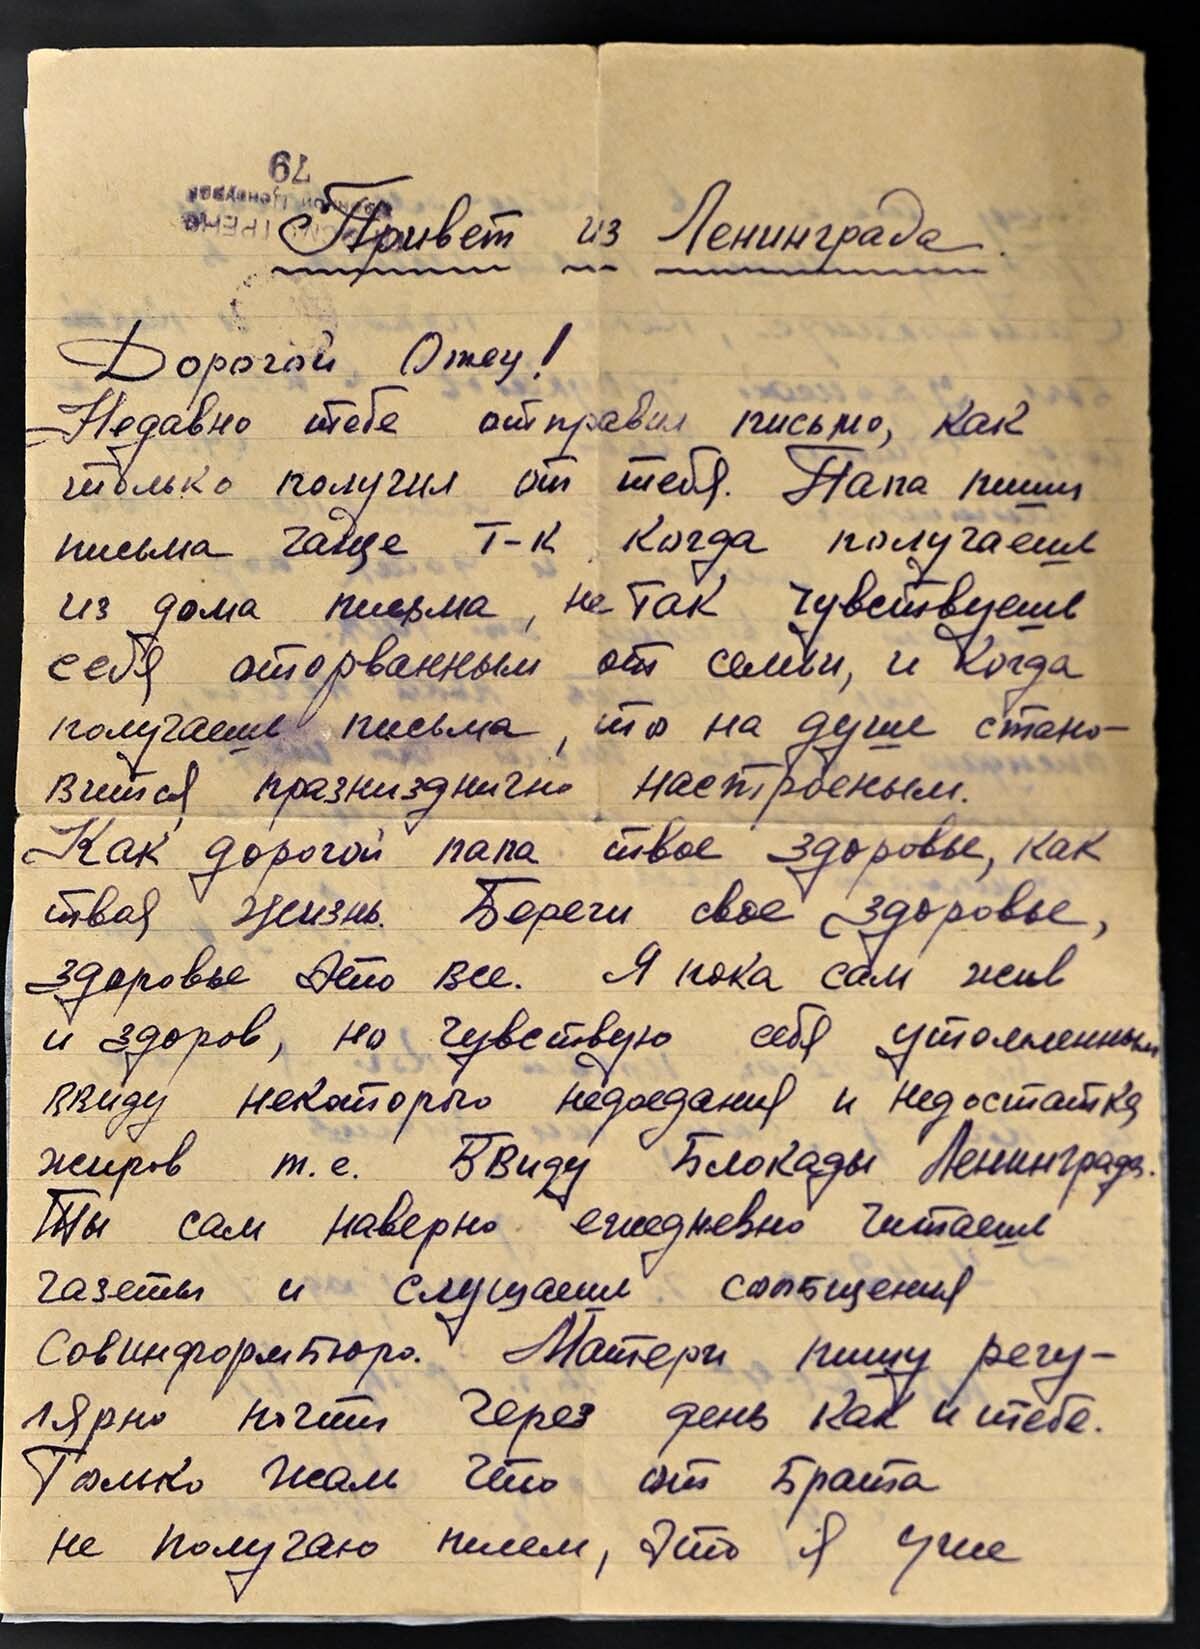 79
Привет из Ленинграда.
Дорогой Отец!
Недавно тебе отправил письмо, как
только получил от тебя. Папа пиши
письма чаще т-к когда получаешь
из дома письма, не так чувствуешь
себя оторванным от семьи, и когда
получаешь письма, то на душе стано-
вится празнизднично настроеным.
Как дорогой папа твое здоровье, как
твоя жизнь. Береги свое здоровье,
здоровье это все. Я пока сам жив
и здоров, но чувствую себя утомленным
ввиду некоторого недоедания и недостатка
жиров т.е. Ввиду Блокады Ленинграда.
Ты сам наверно ежедневно читаешь
газеты и слушаешь сообщения
Совинформбюро. Матери пишу регу-
лярно почти через день как и тебе.
Только жаль что от брата
не получаю писем, это я уже